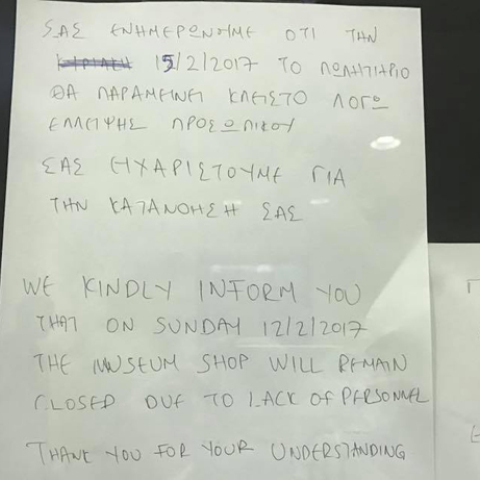 ΣΑΣ ΕΝΗΜΕΡΩΝΟΥΜΕ ΟΤΙ ΤΗΝ
ΚΥΡΙΑΚΗ 15/2/2017 ΤΟ ΠΩΛΗΤΗΡΙΟ
ΘΑ ΠΑΡΑΜΕΙΝΕΙ ΚΛΕΙΣΤΟ ΛΟΓΩ
ΕΛΛΕΙΨΗΣ ΠΡΟΣΩΠΙΚΟΥ
ΣΑΣ ΕΥΧΑΡΙΣΤΟΥΜΕ ΓΙΑ
ΤΗΝ ΚΑΤΑΝΟΗΣΗ ΣΑΣ
WE KINDLY INFORM YOU
THAT ON SUNDAY 12/2/2017
THE MUSEUM SHOP WILL REMAIN
CLOSED DUE TO LACK OF PERSONNEL
THANK YOU FOR YOUR UNDERSTANDING